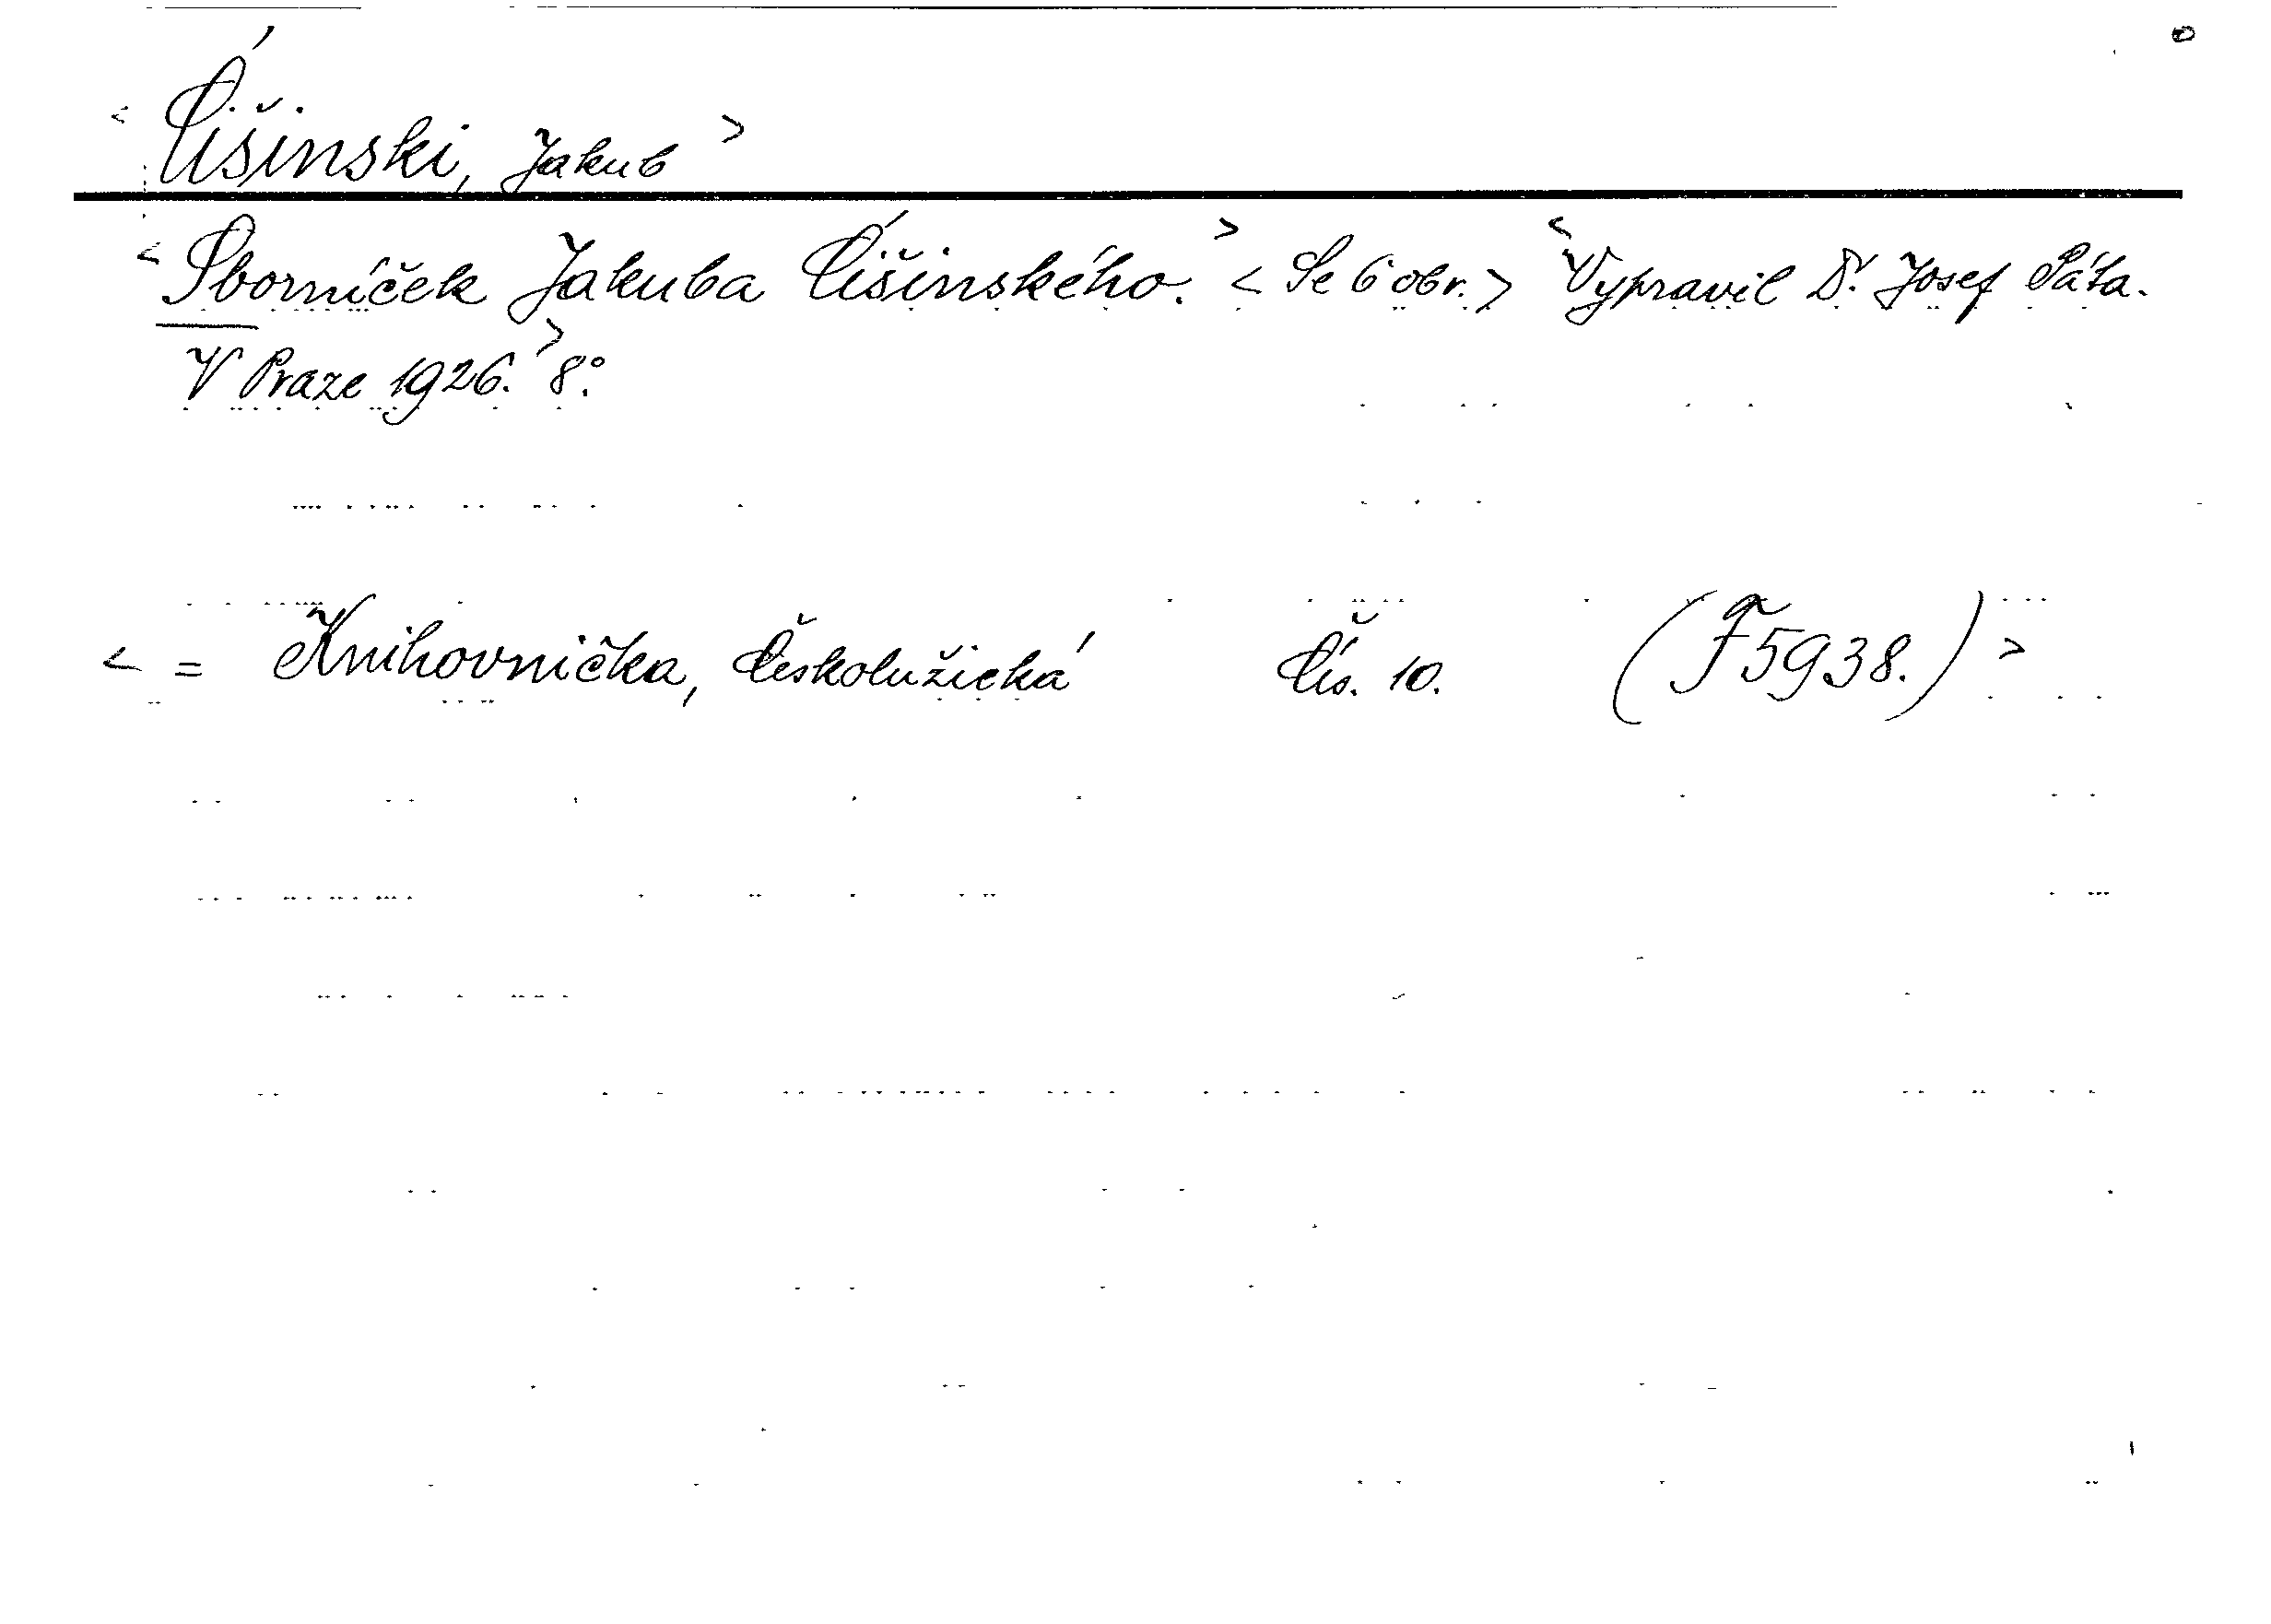 < Ćišinski, Jakub >
< Sborníček Jakuba Ćišinského. > < Se 6 obr. > < Vypravil Dr. Josef Páta.
V Praze 1926. > 8°.
< = Knihovnička, Českolužická Čís. 10. (F 5938.) >